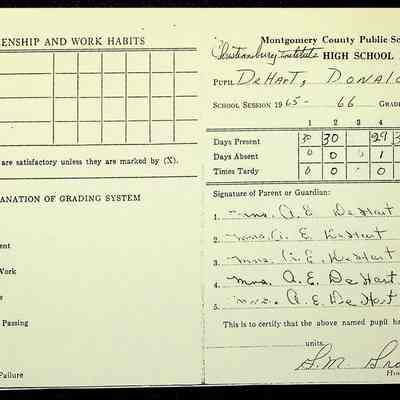 ENSHIP AND WORK HABITS
are satisfactory unless they are marked by (X).
ANATION OF GRADING SYSTEM
ent
Work
e
Passing
Failure
Montgomery County Public Sc
Christiansburg Institute HIGH SCHOOL
PUPIL DeHart, Donal
SCHOOL SESSION 1965-66 GRAD
1 2 3 4
Days Present 30 30 29 3
Days Absent 0 0 0 1
Times Tardy 0 0 0 0
Signature of Parent or Guardian:
1. Mrs. A. E. DeHart
2. Mrs. A. E. DeHart
3. Mrs. A. E. DeHart
4. Mrs. A. E. DeHart
5. Mrs. A. E. DeHart
This is to certify that the above named pupil ha
units.
S. M.
Ho